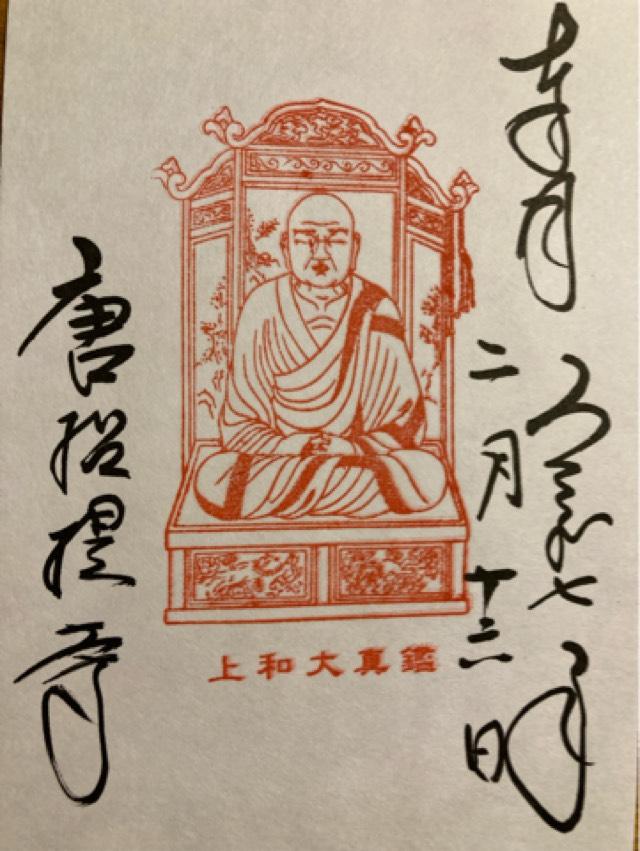 奉拝
令和七年
二月十六日
鑑真大和上
唐招提寺